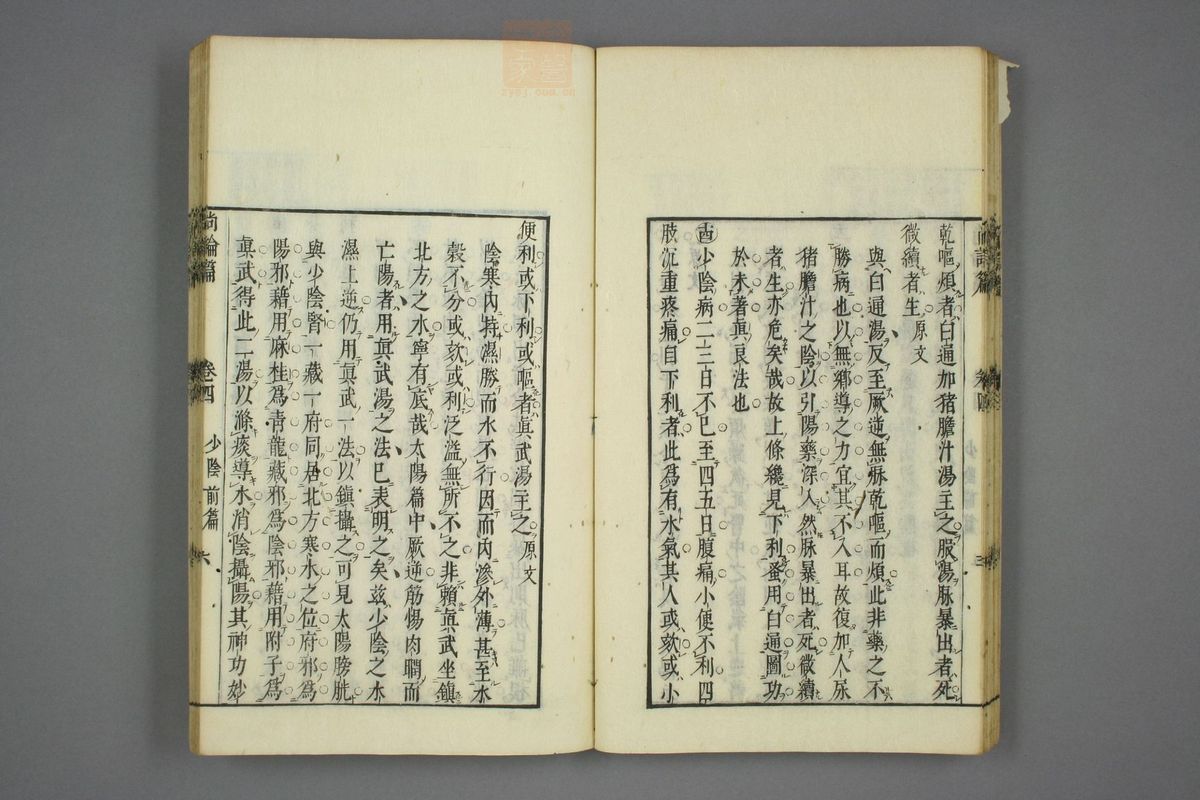 乾嘔煩者白通加猪膽汁湯主之服湯脉暴出者死
微續者生原文
與白通湯反至厥逆無脉乾嘔而煩此非藥之不
勝病也以無鄉導之力宜其不入耳故復加人尿
猪膽汁之陰以引陽藥深入然脉暴出者死微續
者生亦危矣哉故上條纔見下利蚤用白通圖功
於未著眞良法也
少陰病二三日不已至四五日腹痛小便不利四
肢沉重疼痛自下利者此爲有水氣其人或欬或小
便利或下利或嘔者眞武湯主之原文
陰寒內持濕勝而水不行因而內滲外薄甚至水
穀不分或欬或利泛溢無所不之非賴眞武坐鎭
北方之水寧有底哉太陽篇中厥逆筋惕肉瞤而
亡陽者用眞武湯之法已表明之矣兹少陰之水
濕上逆仍用眞武一法以鎭攝之可見太陽膀胱
與少陰腎一藏一府同居北方寒水之位府邪爲
陽邪藉用麻桂爲靑龍藏邪爲陰邪藉用附子爲
眞武得此二湯以滌痰導水消陰攝陽其神功妙
尚論篇
卷四
少陰前篇
六